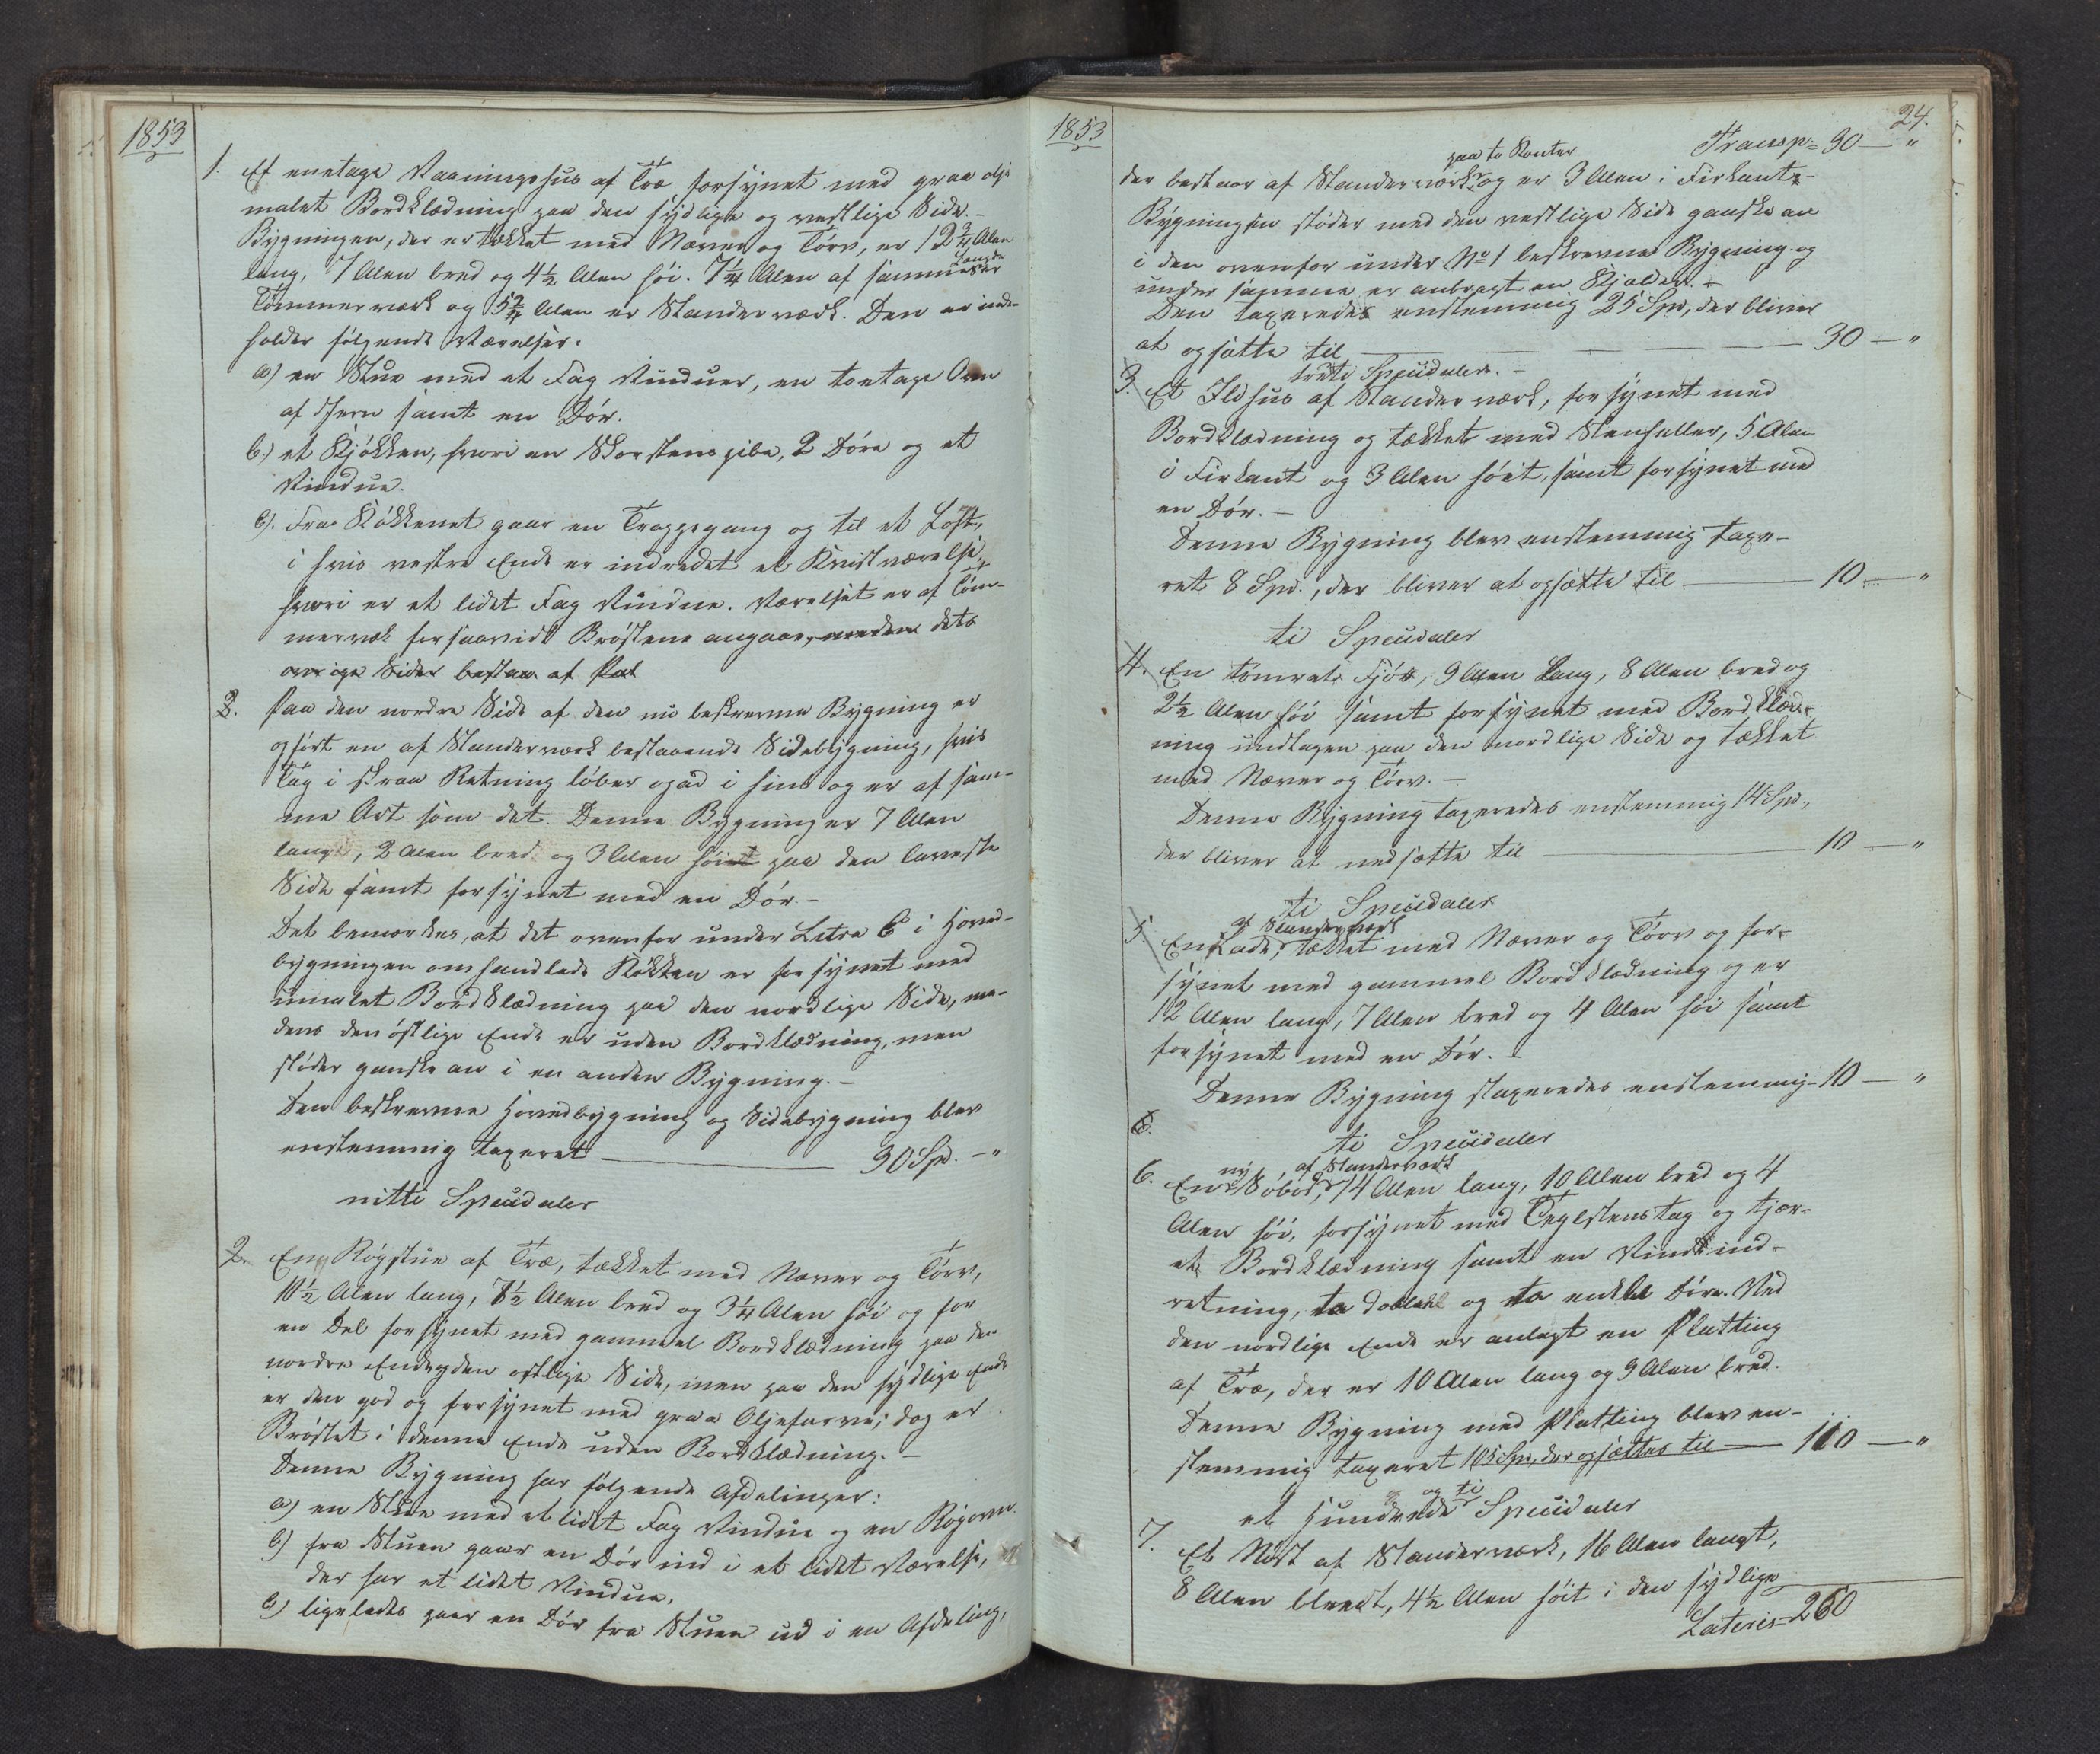 1853
1. Et enetages Vaaningshus af Træ forsynet med graa olje
malet Bordklædning paa den sydlige og vestlige Side. –
Bygningen, der er tækket med Næver og Törv, er 12 3/4 Alen
lang, 7 Alen bred og 4 1/2 Alen höi. 7 1/4 Alen af sammes Længde er
Tömmerværk og 5 2/4 Alen er Standerværk. Den er inde-
holder fölgende Værelser:
a) en Stue med et Fag Vinduer, en toetages Ovn
af Jern samt en Dör.
b) et Kjökken, hvori en Skorstenspibe, 2 Döre og et
Vindue.
c). Fra Kökkenet gaar en Trappegang op til et Loft,
i hvis vestre Ende er indredet et Kvistværelse,
hvori er et lidet Fag Vindue. Værelset er af Töm-
merværk forsaavidt Bröstene angaar, medens dets
övrige Sider bestaar af Pal
2. Paa den nordre Side af den nu beskrevne Bygning er
opfört en af Standerværk bestaaende Sidebygning, hvis
Tag i skraa Retning löber opad i hins og er af sam-
me Art som det. Denne Bygning er 7 Alen
lang, 2 Alen bred og 3 Alen höi paa den laveste
Side samt forsynet med en Dör. –
Det bemærkes, at det ovenfor under Litra b i Hoved-
bygningen omhandlede Kökken er forsynet med
umalet Bordklædning paa den nordlige Side, me-
dens den östlige Ende er uden Bordklædning, men
stöder ganske an i en anden Bygning. –
Den beskrevne Hovedbygning og Sidebygning blev
enstemmig taxeret — 90 Spd. – "
nitti Speciedaler
2. En Rögstue af Træ, tækket med Næver og Törv,
10 1/2 Alen lang, 8 1/2 Alen bred og 3 1/4 Alen höi og for
en Del forsynet med gammel Bordklædning paa den
nordre Ende og den östlige Side, men paa den sydlige Ende
er den god og forsynet med graa Oljefarve; dog er
Bröstet i denne Ende uden Bordklædning. –
Denne Bygning har fölgende Afdelinger:
a) en Stue med et lidet Fag Vindue og en Rögovn.
b) fra Stuen gaar en Dör ind i et lidet Værelse,
der har et lidet Vindue,
c) ligeledes gaar en Dör fra Stuen ud i en Afdeling,
1853
24.
Transp = 90 — "
paa to Kanter
der bestaar af Standerværk og er 3 Alen i Firkant. –
Bygningen stöder med den vestlige Side ganske an
i den ovenfor under No 1 beskrevne Bygning og
under samme er anbragt en Kjælder. –
Den taxeredes enstemmig 25 Spd, der bliver
at opsætte til — 30 — "
tredive Speciedaler. –
3. Et Ildhus af Standerværk, forsynet med
Bordklædning og tækket med Stenheller, 5 Alen
i Firkant og 3 Alen höit, samt forsynet med
en Dör. –
Denne Bygning blev enstemmig taxe-
ret 8 Spd., der bliver at opsætte til — 10 — "
ti Speciedaler
4. En tömret Fjös, 9 Alen lang, 8 Alen bred og
2 1/2 Alen höi samt forsynet med Bordklæd-
ning undtagen paa den nordlige Side og tækket
med Næver og Törv. –
Denne Bygning taxeredes enstemmig 14 Spd.,
der bliver at nedsætte til — 10 — "
ti Speciedaler
af Standerværk
5. En Lade, tækket med Næver og Törv og for-
synet med gammel Bordklædning og er
12 Alen lang, 7 Alen bred og 4 Alen höi samt
forsynet med en Dör. –
Denne Bygning taxeredes enstemmig – 10 — "
6.
ti Speciedaler
ny af Standerværk
6. En Söbod, 14 Alen lang, 10 Alen bred og 4
Alen höi, forsynet med Teglstenstag og tjær-
et Bordklædning samt en Vindeind-
retning, to dobbelte og to enkle Döre. Ved
den nordlige Ende er anlagt en Platting
af Træ, der er 10 Alen lang og 9 Alen bred.
Denne Bygning med Platting blev en-
stemmig taxeret 105 Spd, der opsættes til — 110 — "
et Hundrede og ti Speciedaler
7. Et Nöst af Standerværk, 16 Alen langt,
8 Alen bredt, 4 1/2 Alen höit i den sydlige
Lateris = 260